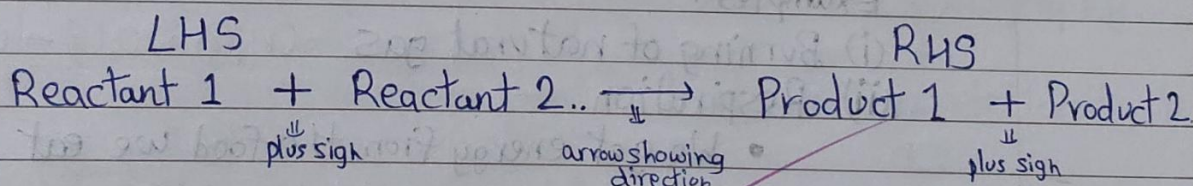 LHS RHS
Reactant 1 + Reactant 2.. → Product 1 + Product 2
⇓ plus sign ⇓ arrow showing direction ⇓ plus sign